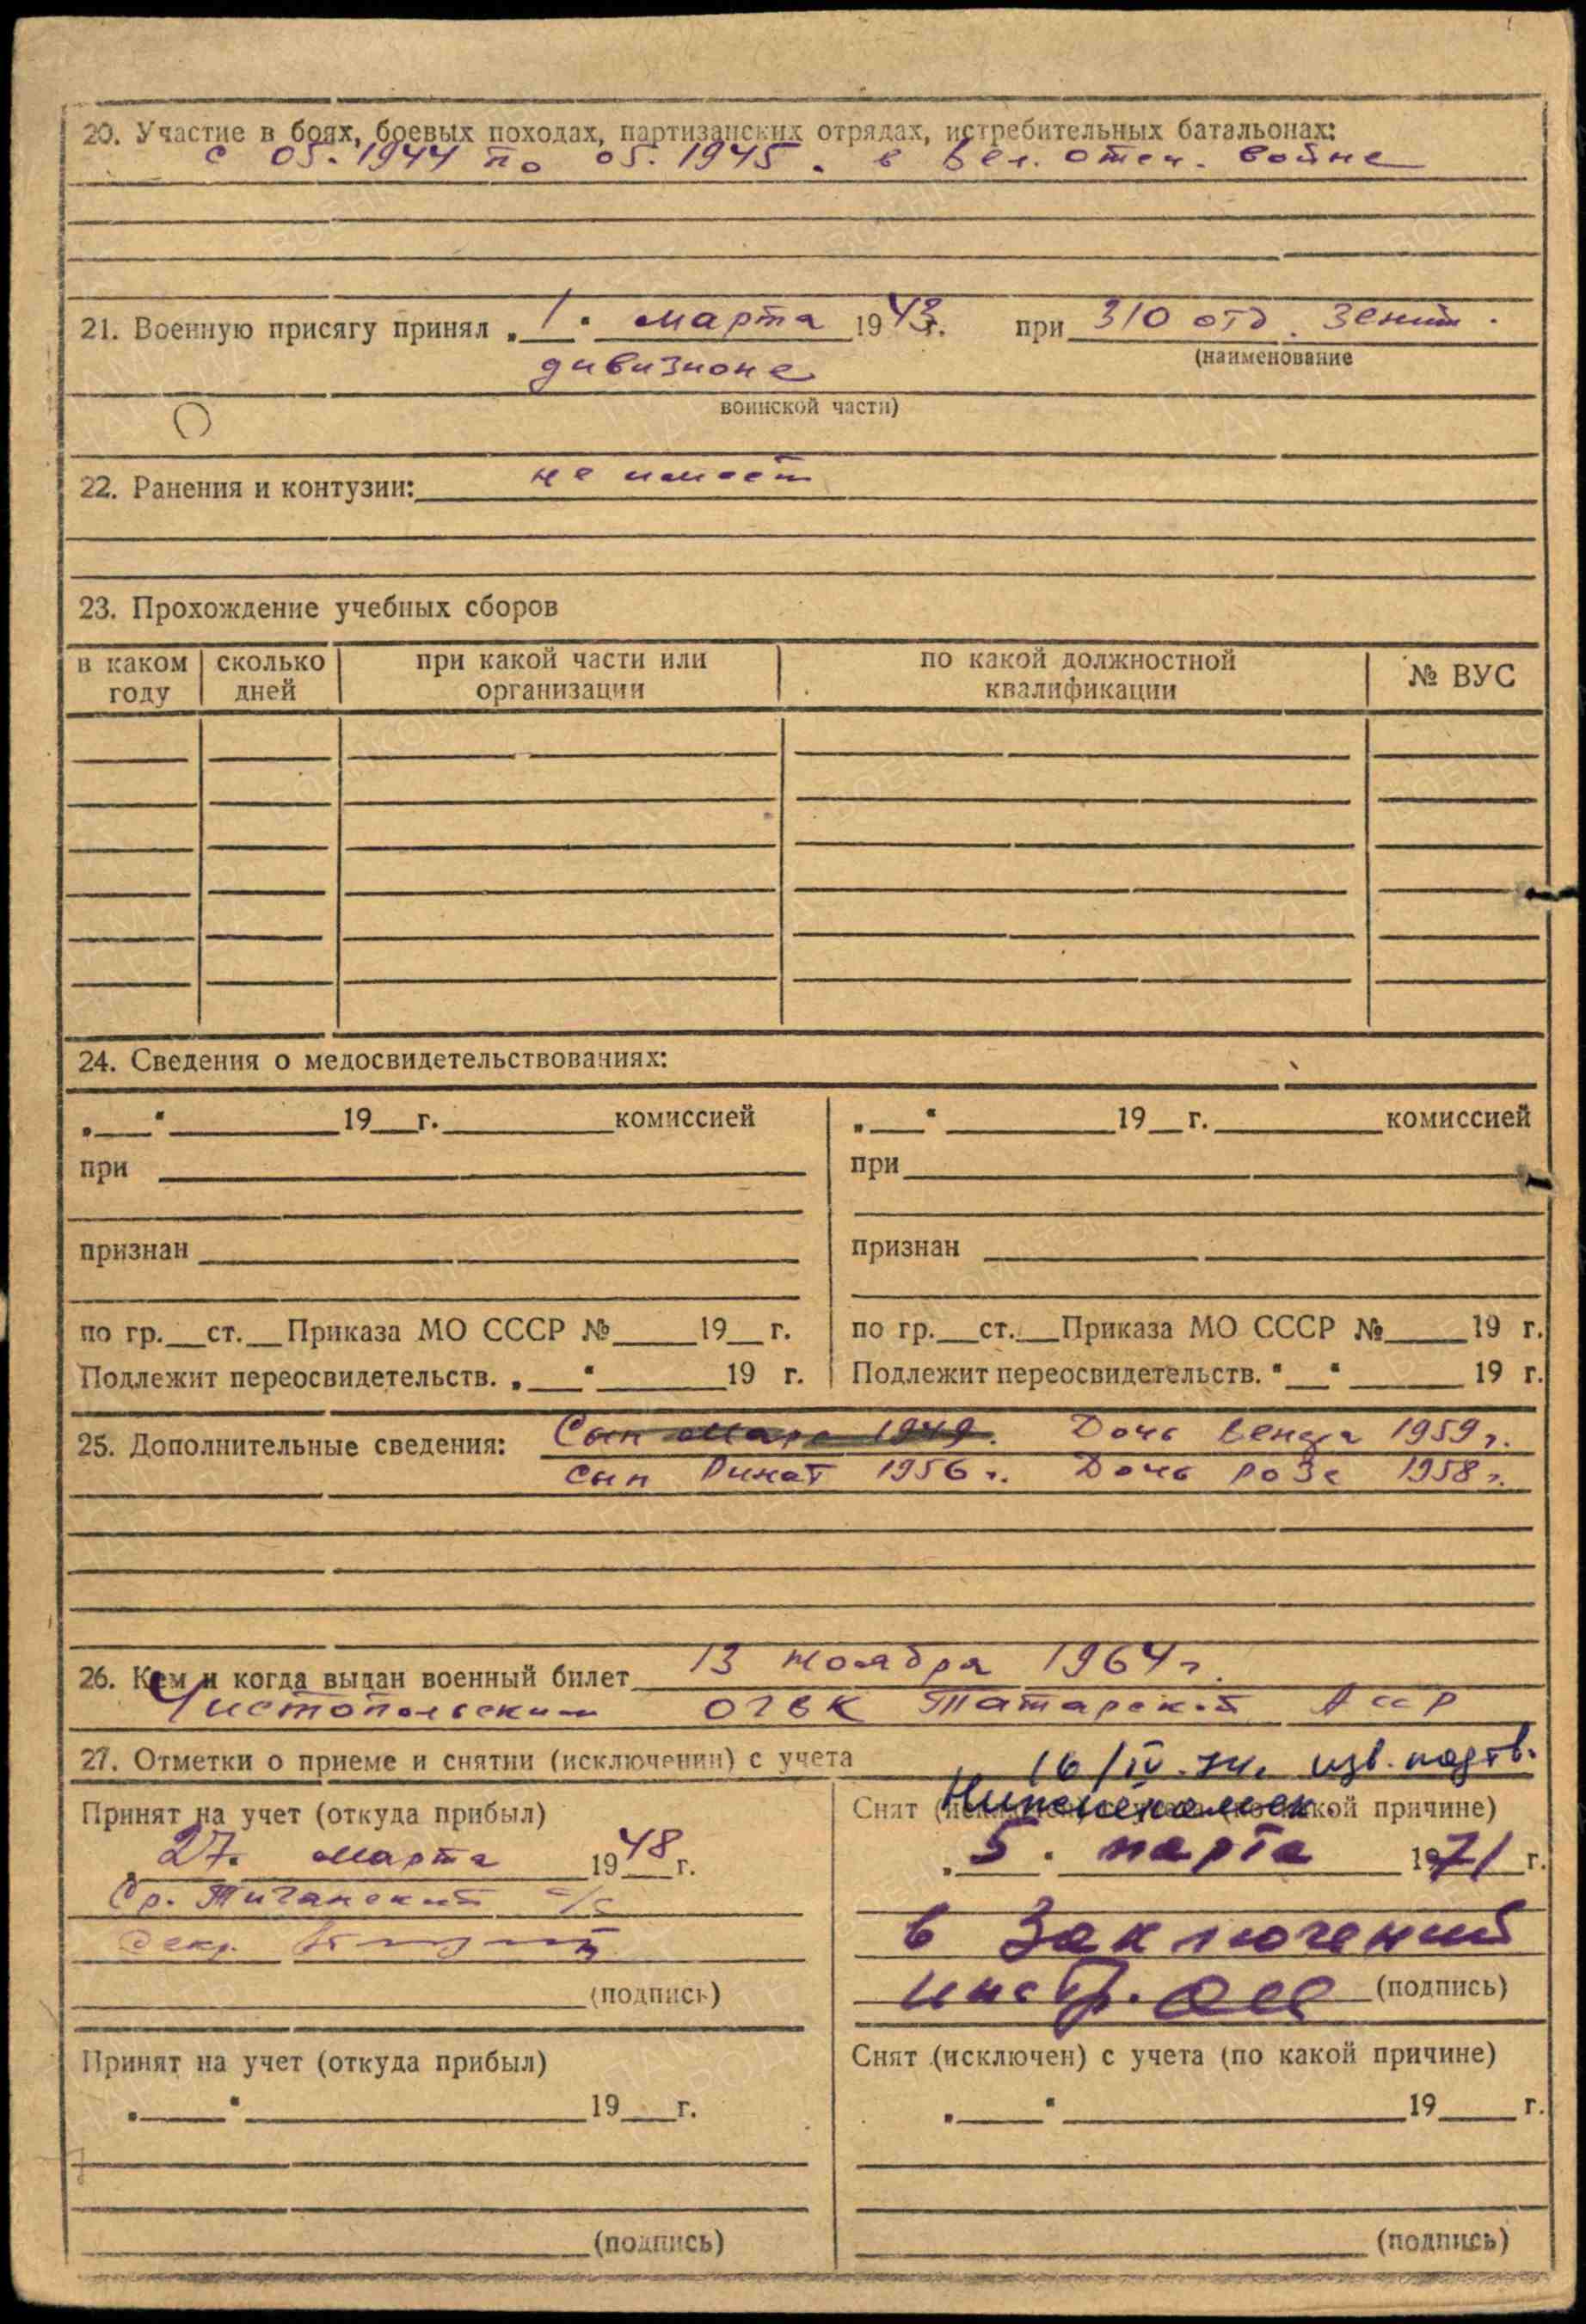 20. Участие в боях, боевых походах, партизанских отрядах, истребительных батальонах:
с 05.1944 по 05.1945. в Вел. отеч. войне
21. Военную присягу принял „1“ марта 1943г. при 310 отд. зенит.
(наименование
дивизионе
воинской части)
22. Ранения и контузии: не имеет
23. Прохождение учебных сборов
в каком году | сколько дней | при какой части или организации | по какой должностной квалификации | № ВУС
24. Сведения о медосвидетельствованиях:
„__“ ______ 19__г. ______ комиссией
при
признан
по гр.__ст.__Приказа МО СССР №____19__г.
Подлежит переосвидетельств. „__“ ______19 г.
„__“ ______ 19__г. ______ комиссией
при
признан
по гр.__ст.__Приказа МО СССР №____19 г.
Подлежит переосвидетельств. "__“ ______ 19 г.
25. Дополнительные сведения: Сын 1949. Дочь 1959г.
сын Ринат 1956г. Дочь Роза 1958г.
26. Кем и когда выдан военный билет 13 ноября 1964г.
Чистопольским ОГВК Татарской АССР
27. Отметки о приеме и снятии (исключении) с учета 16/IV.74.
Принят на учет (откуда прибыл)
27. марта 1948г.
Ср. Тиганский с/с
(подпись)
Снят кой причине)
„5“ марта 1971 г.
в Заключений
(подпись)
Принят на учет (откуда прибыл)
„__“ ______ 19__г.
(подпись)
Снят (исключен) с учета (по какой причине)
„__“ ______ 19__г.
(подпись)